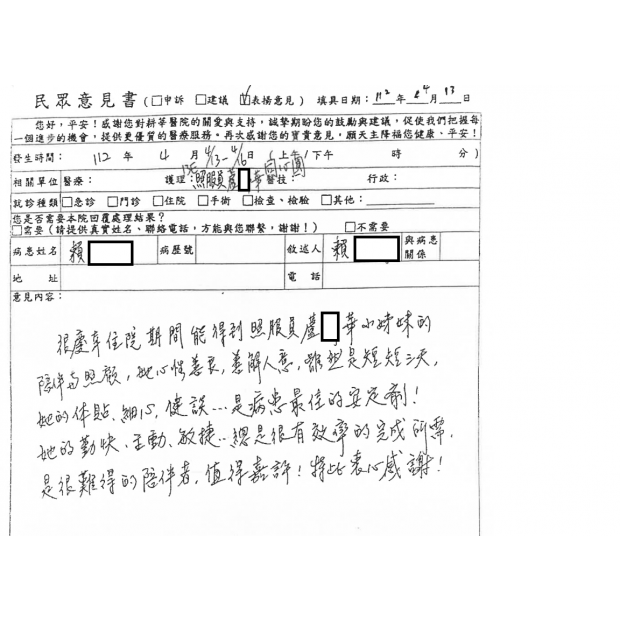 民眾意見書(□申訴 □建議 ☑表揚意見) 填具日期:112年04月13日
您好,平安!感謝您對耕莘醫院的關愛與支持,誠摯期盼您的鼓勵與建議,促使我們把握每
一個進步的機會,提供更優質的醫療服務。再次感謝您的寶貴意見,願天主降福您健康、平安!
發生時間: 112 年 4 月 4/13-4/16 日(上午/下午 時 分)
相關單位 醫療: 護理:照服員盧 華 醫技: 行政:
就診種類 □急診 □門診 □住院 □手術 □檢查、檢驗 □其他:
您是否需要本院回覆處理結果?
□需要(請提供真實姓名、聯絡電話,方能與您聯繫,謝謝!) □不需要
病患姓名 賴 病歷號 敘述人 賴 與病患關係
地址 電話
意見內容:
很慶幸住院期間能得到照服員盧 華小妹妹的
陪伴与照顧,她心性善良,善解人意,雖然是短短三天,
她的体貼、細心、健談…是病患最佳的安定劑!
她的勤快、主動、敏捷…總是很有效率的完成所需,
是很難得的陪伴者,值得嘉許!特此衷心感謝!